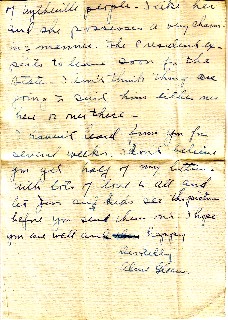 of Wytheville people. I like her
and she possesses a very charm-
ing manner. The President ex-
pects to leave soon for the
State. I don't think things are
going to suit him either
here or over there.
I haven't heard from you for
several weeks. I don't believe
you get half of my letters.
With lots of love to all and
let and see the picture
before you send them on. I hope
you are well and happy
Devotedly